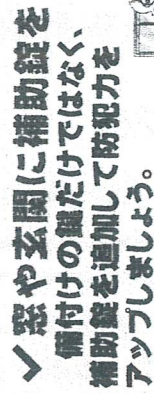 ✓窓や玄関に補助錠を
備付けの鍵だけではなく、
補助錠を追加して防犯力を
アップしましょう。